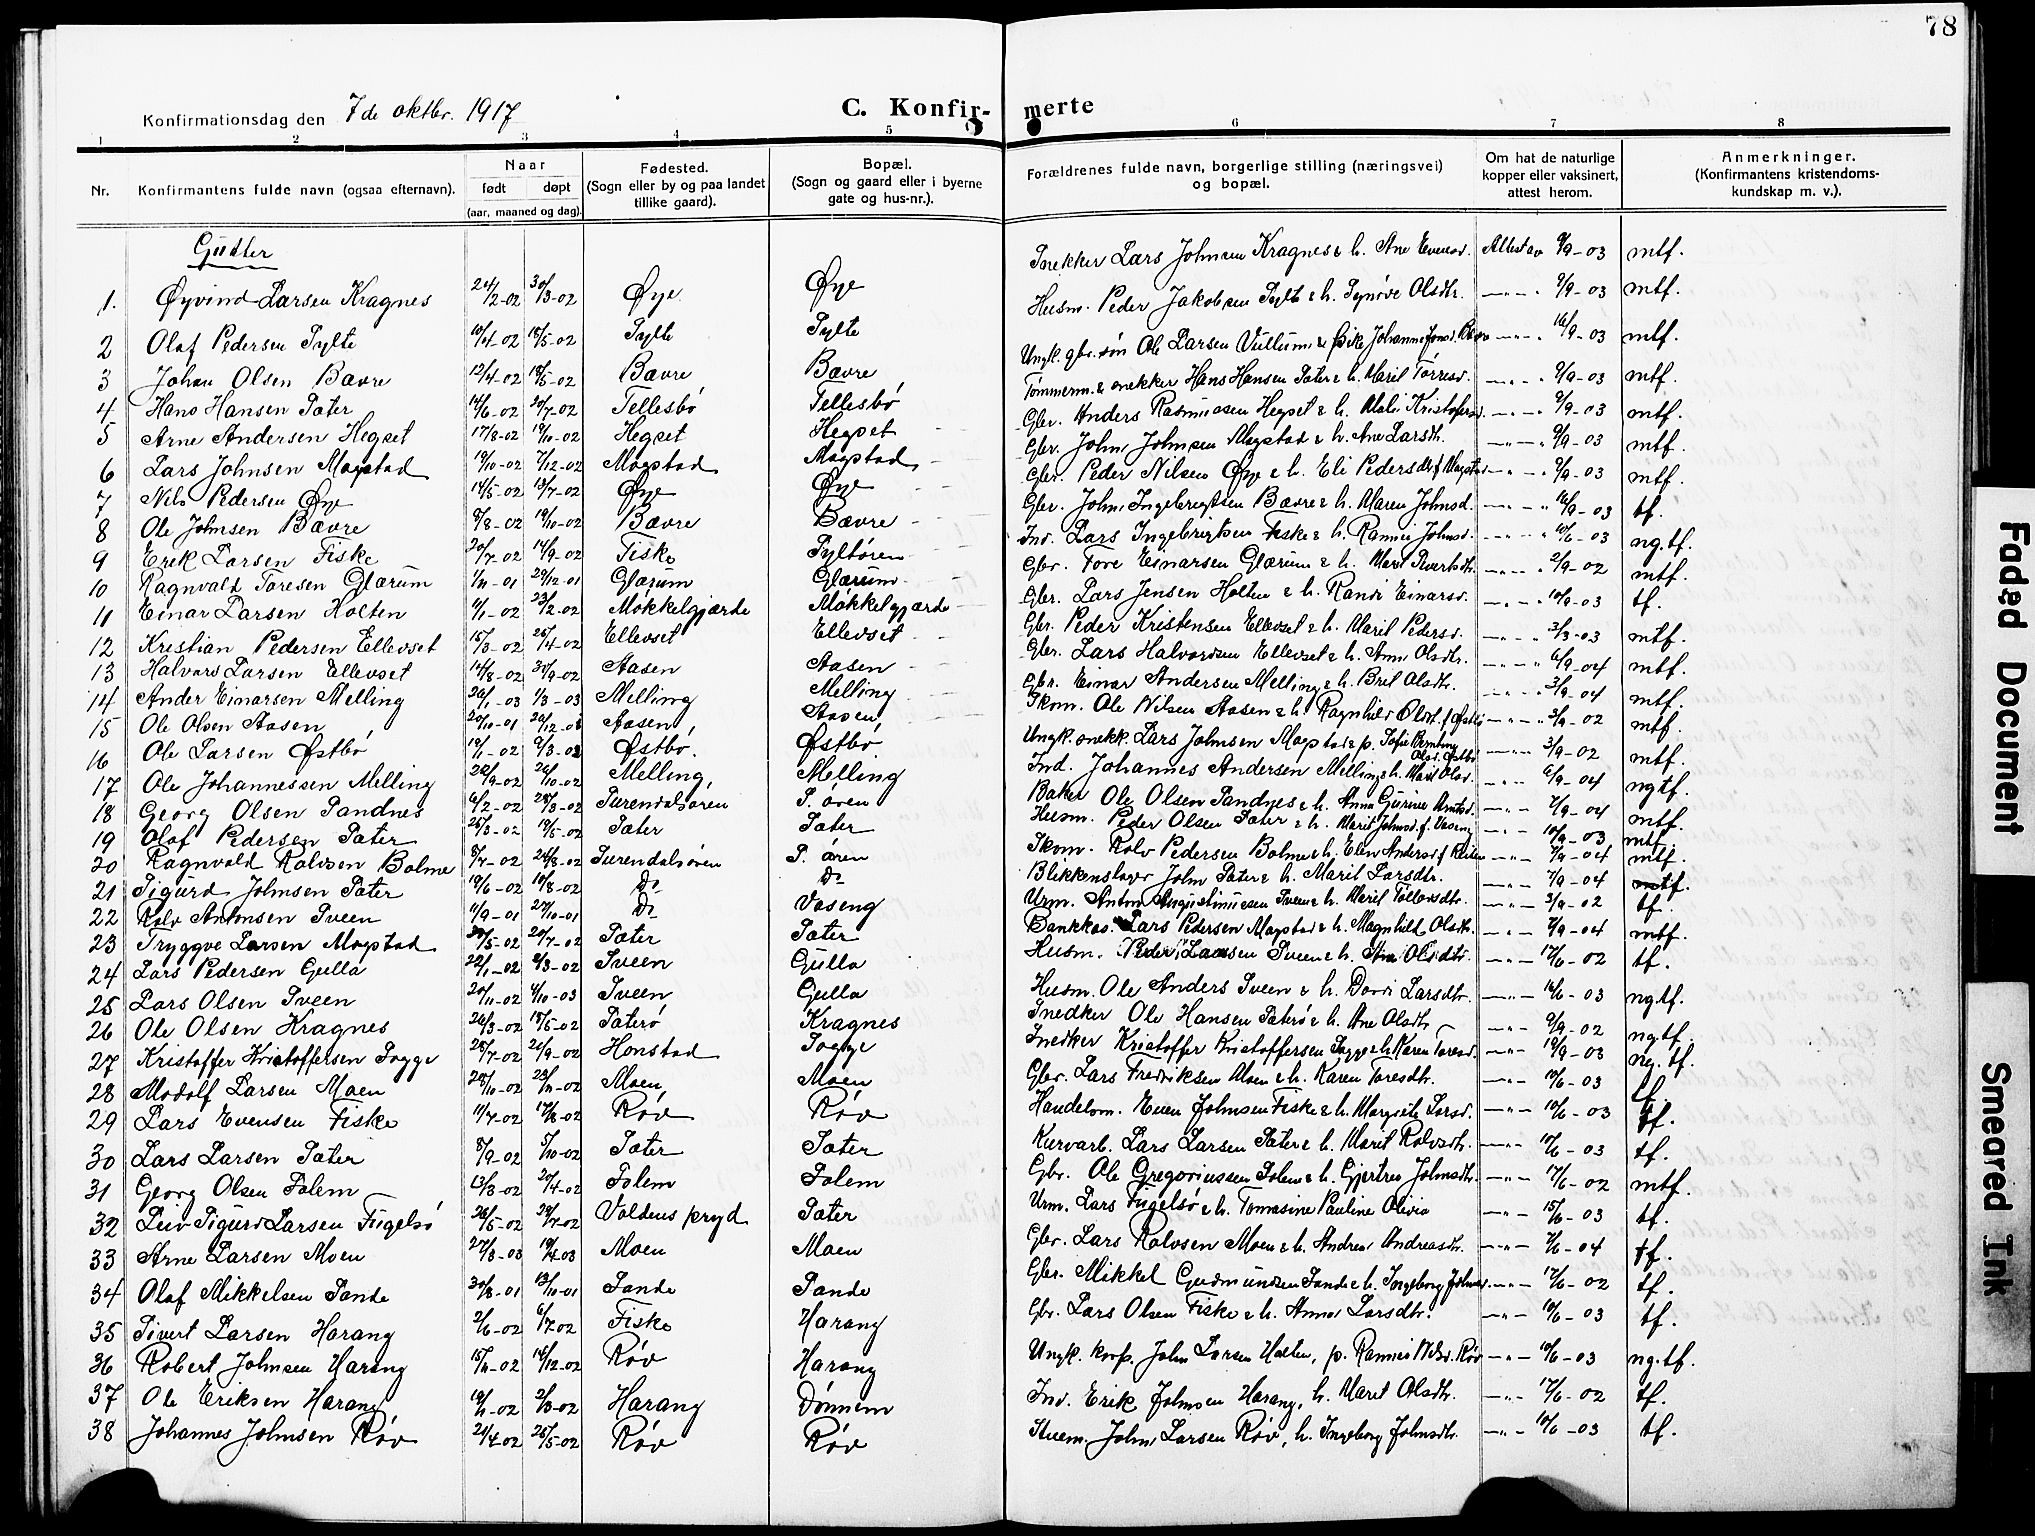 78
Konfirmationsdag den 7de oktbr. 1917
C. Konfir- merte
1 2 3 4 5 6 7 8
Nr. Konfirmantens fulde navn (ogsaa efternavn). Naar født døpt (aar, maaned og dag). Fødested. (Sogn eller by og paa landet tillike gaard). Bopæl. (Sogn og gaard eller i byerne gate og hus-nr.). Forældrenes fulde navn, borgerlige stilling (næringsvei) og bopæl. Om hat de naturlige kopper eller vaksinert, attest herom. Anmerkninger. (Konfirmantens kristendoms-kundskap m. v.).
Gutter
1. Øyvind Larsen Kragnes 24/2-02 30/3-02 Øye Øye Snekker Lars Johnsen Kragnes & h. Ane Evensd. Attest av 9/9-03 mtf.
2 Olaf Pedersen Sylte 10/4-02 18/5-02 Sylte Sylte Husm. Peder Jakobsen Sylte & h. Synøve Olsdtr. 9/9-03 mtf.
3 Johan Olsen Bævre 12/4-02 18/5-02 Bævre Bævre Ungk. gbr. søn Ole Larsen Vullum & pike Johanne 16/9-03 mtf.
4 Hans Hansen Sæter 14/6-02 20/7-02 Tellesbø Tellesbø Tømmerm. & snekker Hans Hansen Sæter & h. Marit Torresd. 9/9-03 mtf.
5 Arne Andersen Hegset 17/8-02 19/10-02 Hegset Hegset Gbr. Anders Rasmussen Hegset & h. Mali Kristofersd. 9/9-03 mtf.
6 Lars Johnsen Mogstad 19/10-02 7/12-02 Mogstad Mogstad Gbr. John Johnsen Mogstad & h. Ane Larsdtr. 9/9-03 mtf.
7 Nils Pedersen Øye 14/5-02 13/7-02 Øye Øye Gbr. Peder Nilsen Øye & h. Eli Pedersdtr f. Mogstad 9/9-03 mtf.
8 Ole Johnsen Bævre 9/8-02 19/10-02 Bævre Bævre Gbr. John Ingebrigtsen Bævre & h. Maren Johnsd. 16/9-03 tf.
9 Erik Larsen Fiske 20/7-02 14/9-02 Fiske Syltøren Ind. Lars Ingebrigtsen Fiske & h. Rannei Johnsd. 10/6-03 ng.tf.
10 Ragnvald Toresen Glærum 1/11-01 29/12-01 Glærum Glærum Gbr. Tore Einarsen Glærum & h. Marit Sivertsdtr. 2/9-02 mtf.
11 Einar Larsen Holten 11/1-02 23/2-02 Møkkelgjærde Møkkelgjærde Gbr. Lars Jensen Holten & h. Randi Einarsd. 10/9-03 tf.
12 Kristian Pedersen Ellevset 15/3-02 25/4-02 Ellevset Ellevset Gbr. Peder Kristensen Ellevset & h. Marit Pedersd. 3/3-03 mtf.
13 Halvard Larsen Ellevset 14/8-02 30/9-02 Aasen Aasen Gbr. Lars Halvordsen Ellevset & h. Ann Olsdtr. 6/9-04 mtf.
14 Ander Einarsen Melling 26/1-03 1/3-03 Melling Melling Gbr. Einar Andersen Melling & h. Brit Olsdtr. 3/9-04 mtf.
15 Ole Olsen Aasen 20/10-01 Aasen Aasen Skom. Ole Nilsen Aasen & h. Ragnhild Olsdt. 3/9-02 mtf.
16 Ole Larsen Østbø 19/1-02 9/3-02 Østbø. Østbø Ungk. snekk. Lars Johnsen Mogstad & p. Sofie Olsd. Østbø 3/9-02 mtf.
17 Ole Johannessen Melling 22/9-02 26/10-02 Melling Melling Ind. Johannes Andersen Melling & h. Marit Olsd. 6/9-04 ngtf.
18 Georg Olsen Sandnes 6/2-02 Surendalsøren S. øren Baker Ole Olsen Sandnes & h. Anna Gurine Arntsd. 7/9-04 mtf.
19 Olaf Pedersen Sæter 25/3-02 19/5-02 Sæter Sæter Husm. Peder Olsen Sæter & h. Marit Johnsd. f. Vaseng 10/9-03 mtf.
20 Ragnvald Rolvsen Bolme 8/7-02 24/8-02 Surendalsøren S. øren Skom. Rolv Pedersen Bolme & h. Elen Andersd. 7/9-04 mtf.
21 Sigurd Johnsen Sæter 19/6-02 10/8-02 Do Do Blikkenslager John Sæter & h. Marit Larsdtr. 7/9-04 mtf.
22 Rolv Antonsen Sveen 11/9-01 27/10-01 Do Vaseng Urm. Anton Augustinussen Sveen & h. Marit Tollevsdtr. 3/9-02 tf.
23 Tryggve Larsen Mogstad 30/5-02 20/7-02 Sæter Sæter Bankkas. Lars Pedersen Mogstad & h. Magnhild Olsdtr. 7/9-04 mtf.
24 Lars Pedersen Gulla 22/1-02 2/3-02 Sveen Gulla Husm. Peder Larsen Sveen & h. Ane Olsdtr. 17/6-02 tf.
25 Lars Olsen Sveen 20/11-02 4/10-03 Sveen Gulla Husm. Ole Anders Sveen & h. Dordi Larsdtr. 16/6-03 ng.tf.
26 Ole Olsen Kragnes 26/3-02 18/5-02 Sæterø Kragnes Snedker Ole Hansen Sæterø & h. Ane Olsdtr. 9/9-02 ng.tf.
27 Kristoffer Kristoffersen Sogge 28/7-02 21/9-02 Honstad Sogge Snedker Kristoffer Kristoffersen Sogge & h. Karen Toresd. 19/9-03 ng.tf.
28 Modolf Larsen Moen 29/10-02 23/11-02 Moen Moen Gbr. Lars Fredriksen Moen & h. Karen Toresdtr. 10/6-03 tf.
29 Lars Evensen Fiske 11/7-02 17/8-02 Røv Røv Handelsm. Even Johnsen Fiske & h. Margrete Larsd. 10/6-03 tf.
30 Lars Larsen Sæter 8/9-02 5/10-02 Sæter Sæter Kurvarb. Lars Larsen Sæter & h. Marit Rolvsdtr. 10/6-03 tf.
31 Georg Olsen Solem 13/3-02 20/4-02 Solem Solem Gbr. Ole Gregoriussen Solem & h. Gjertru Johnsdtr. 17/6-02 mtf.
32 Leiv Sigurd Larsen Fugelsø 26/5-02 29/7-02 Voldens pryd Sæter Urm. Lars Fugelsø & h. Tomasine Pauline Olivia 15/6-03 tf.
33 Arne Larsen Moen 27/3-03 19/4-03 Moen Moen Gbr. Lars Rolvsen Moen & h. Andrea Andreasdtr. 7/6-04 tf.
34 Olaf Mikkelsen Sande 30/8-01 13/10-01 Sande Sande Gbr. Mikkel Gudmundsen Sande & h. Ingeborg Johnsd. 17/6-02 tf.
35 Sivert Larsen Harang 2/6-02 6/7-02 Fiske Harang Gbr. Lars Olsen Fiske & h. Anne Larsdtr. 10/6-03 tf.
36 Robert Johnsen Harang 15/11-02 14/12-02 Røv Harang Ungk. korp. John Larsen Holten, p. Rannei Nilsd. Røv 10/6-03 ng.tf.
37 Ole Eriksen Harang 19/1-02 2/3-02 Harang Dønnem Ind. Erik Johnsen Harang, h. Marit Olsdtr. 17/6-02 tf.
38 Johannes Johnsen Røv 21/4-02 25/5-02 Røv Røv Stuem. John Larsen Røv, h. Ingeborg Johnsdtr. 10/6-03 tf.
Faded Document
Smeared Ink